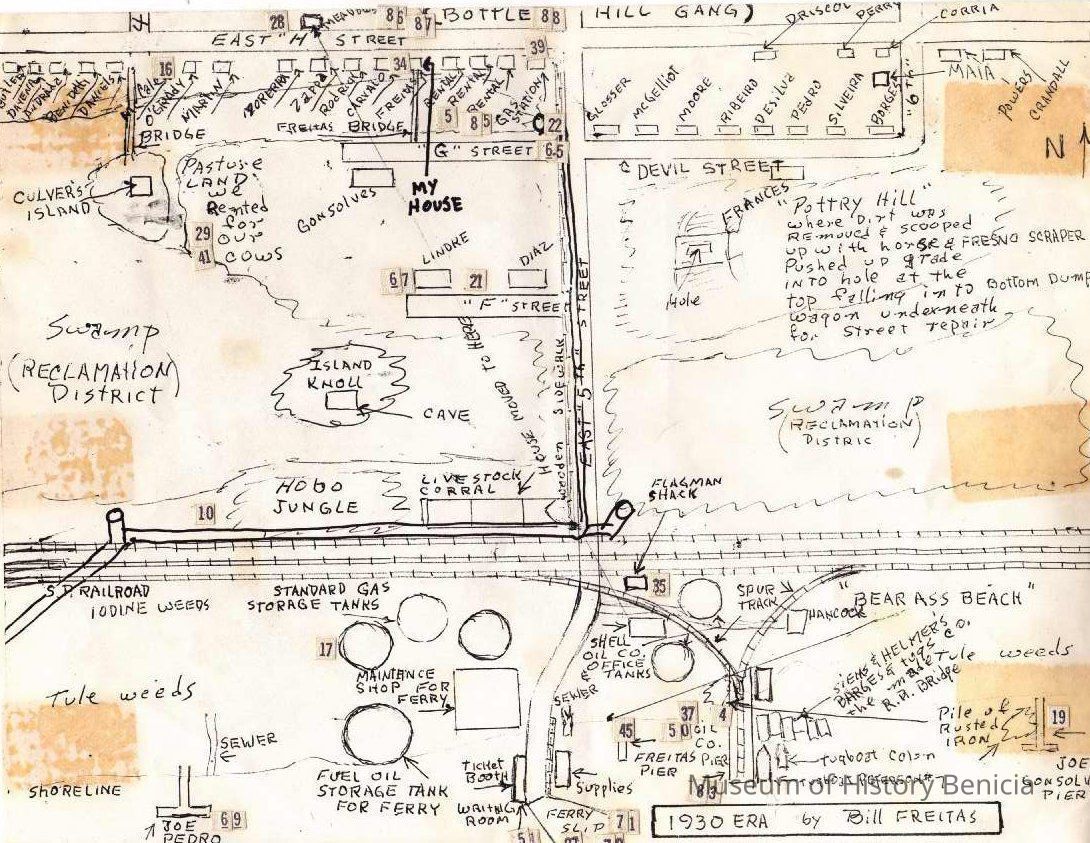 28
MEADOWS
86
87
BOTTLE
88
HILL GANG)
DRISCOL
PERRY
CORRIA
EAST "H" STREET
39
16
34
MAIA
POWERS
CRANDALL
"6TH"
DANIELS
O'GRADY
MARTIN
ZARA
FREITAS
RENTAL
RENTAL
RENTAL
GAS
STATION
5
8
5
22
GLOSSER
McGElliot
MOORE
RIBEIRO
DESilva
PEDRO
SILVEIRA
BORGES
BRIDGE
FREITAS BRIDGE
"G" STREET
65
DEVIL STREET
N
CULVER'S
ISLAND
Pasture
LAND
we
Rented
for
our
cows
29
41
Gonsolves
MY
HOUSE
FRANCES
Hole
"Pottry Hill"
where Dirt was
REMOVED & scooped
up with horse & FRESNO SCRAPER
Pushed up grade
INTO hole at the
top falling into Bottom Dump
wagon underneath
for street repair
LINDRE
DIAZ
67
21
"F" STREET
Swamp
(RECLAMATION)
DISTRICT
ISLAND
KNOLL
CAVE
HOUSE MOVED TO HERE
Wooden SIDEWALK
EAST "5TH" STREET
Swamp
(RECLAMATION)
DISTRIC
HOBO
JUNGLE
LIVESTOCK
CORRAL
FLAGMAN
SHACK
10
S.P. RAILROAD
IODINE WEEDS
STANDARD GAS
STORAGE TANKS
35
SPUR
TRACK
HANCOCK
"BEAR ASS BEACH"
17
SHELL
OIL CO.
OFFICE
& TANKS
MAINTANCE
SHOP FOR
FERRY
SEWER
SIEMS & HELMERS
BARGES & tugs CO.
the made
R.R. Bridge
Tule weeds
Tule weeds
SEWER
37
4
45
50
OIL
CO.
PIER
FREITAS
PIER
Pile of
Rusted
IRON
19
SHORELINE
FUEL OIL
STORAGE TANK
FOR FERRY
TICKET
BOOTH
WAITING
ROOM
Supplies
83
tugboat Colon
JOE
GONSOLV
PIER
Museum of History Benicia
JOE
PEDRO
69
51
FERRY
SLIP
71
1930 ERA by Bill FREITAS